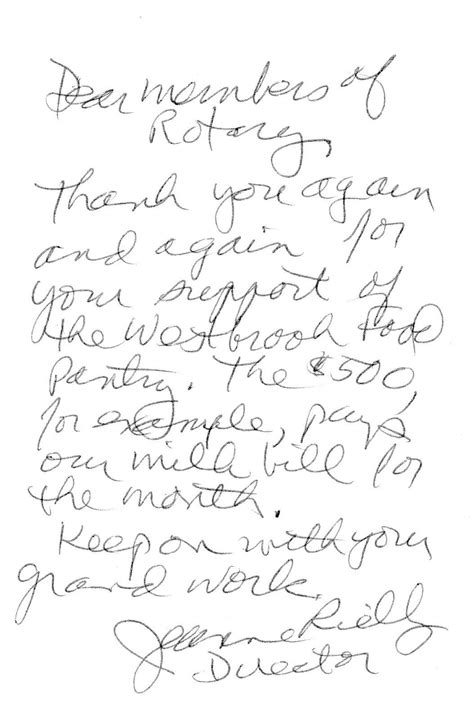 Dear members of
Rotary,
Thank you again
and again for
your support of
the Westbrook Food
Pantry. The $500,
for example, pays
our milk bill for
the month.
Keep on with your
grand work.
Jeanne Rielly
Director